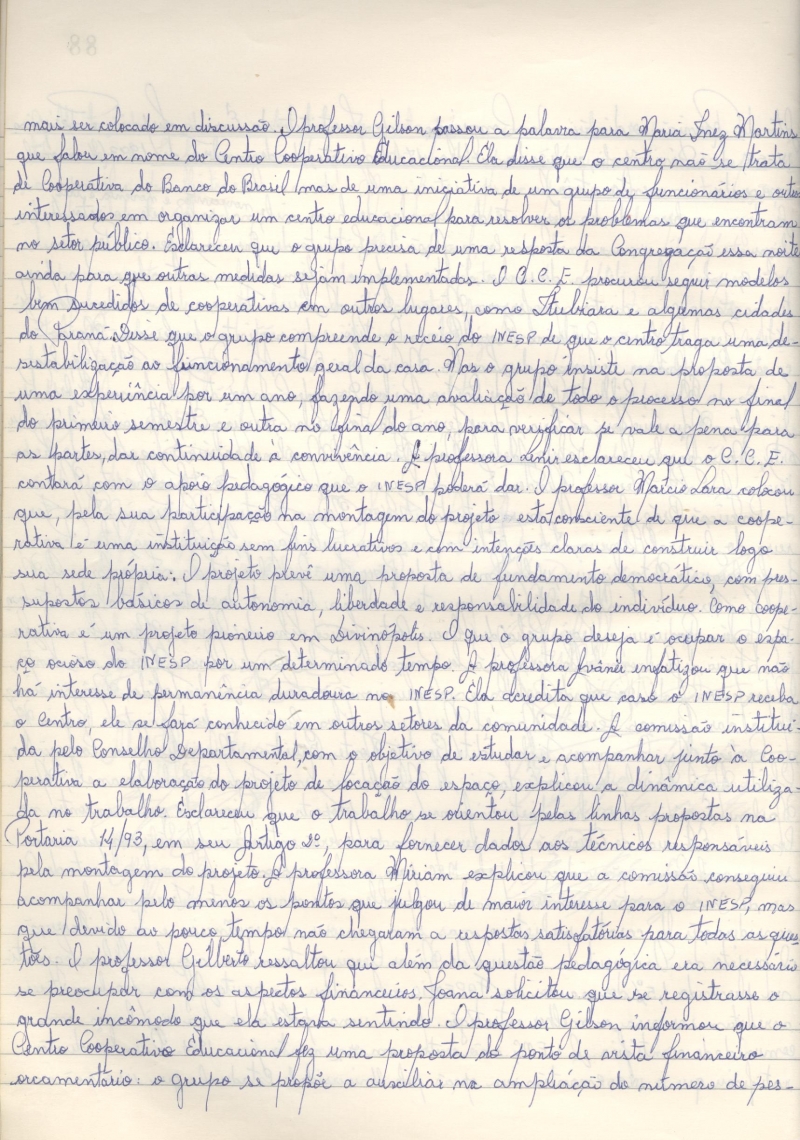 mais ser colocado em discussão. O professor Gilson passou a palavra para Maria Inez Martins
que falou em nome do Centro Cooperativo Educacional. Ela disse que o centro não se trata
de Cooperativa do Banco do Brasil mas de uma iniciativa de um grupo de funcionários e outros
interessados em organizar um centro educacional para resolver os problemas que encontram
no setor público. Esclareceu que o grupo precisa de uma resposta da Congregação essa noite
ainda para que outras medidas sejam implementadas. O C.C.E. procurou seguir modelos
bem sucedidos de cooperativas em outros lugares, como Itubiara e algumas cidades
do Paraná. Disse que o grupo compreende o receio do INESP de que o centro traga uma de-
sestabilização ao funcionamento geral da casa. Mas o grupo insiste na proposta de
uma experiência por um ano, fazendo uma avaliação de todo o processo no final
do primeiro semestre e outra no final do ano, para verificar se vale a pena para
as partes, dar continuidade à convivência. A professora esclareceu que o C.C.E.
contará com o apoio pedagógico que o INESP poderá dar. O professor Márcio Lara colocou
que, pela sua participação na montagem do projeto está consciente de que a coope-
rativa é uma instituição sem fins lucrativos e com intenções claras de construir logo
sua sede própria. O projeto prevê uma proposta de fundamento democrático, com pres-
supostos básicos de autonomia, liberdade e responsabilidade do indivíduo. Como coope-
rativa é um projeto pioneiro em Divinópolis. O que o grupo deseja é ocupar o espa-
ço ocioso do INESP por um determinado tempo. A professora Ivânir enfatizou que não
há interesse de permanência duradoura no INESP. Ela acredita que caso o INESP receba
o Centro, ele se fará conhecido em outros setores da comunidade. A comissão institui-
da pelo Conselho Departamental, com o objetivo de estudar e acompanhar junto à Coo-
perativa a elaboração do projeto de locação do espaço, explicou a dinâmica utiliza-
da no trabalho. Esclareceu que o trabalho se orientou pelas linhas propostas na
Portaria 14/93, em seu Artigo 2º, para fornecer dados aos técnicos responsáveis
pela montagem do projeto. A professora Míriam explicou que a comissão conseguiu
acompanhar pelo menos os pontos que julgou de maior interesse para o INESP, mas
que devido ao pouco tempo não chegaram a respostas satisfatórias para todas as ques
tões. O professor Gilberto ressaltou que além da questão pedagógica era necessário
se preocupar com os aspectos financeiros. Joana solicitou que se registrasse o
grande incômodo que ela estava sentindo. O professor Gilson informou que o
Centro Cooperativo Educacional fez uma proposta do ponto de vista financeiro
orcamentário: o grupo se propõe a auxiliar na ampliação do número de pes-